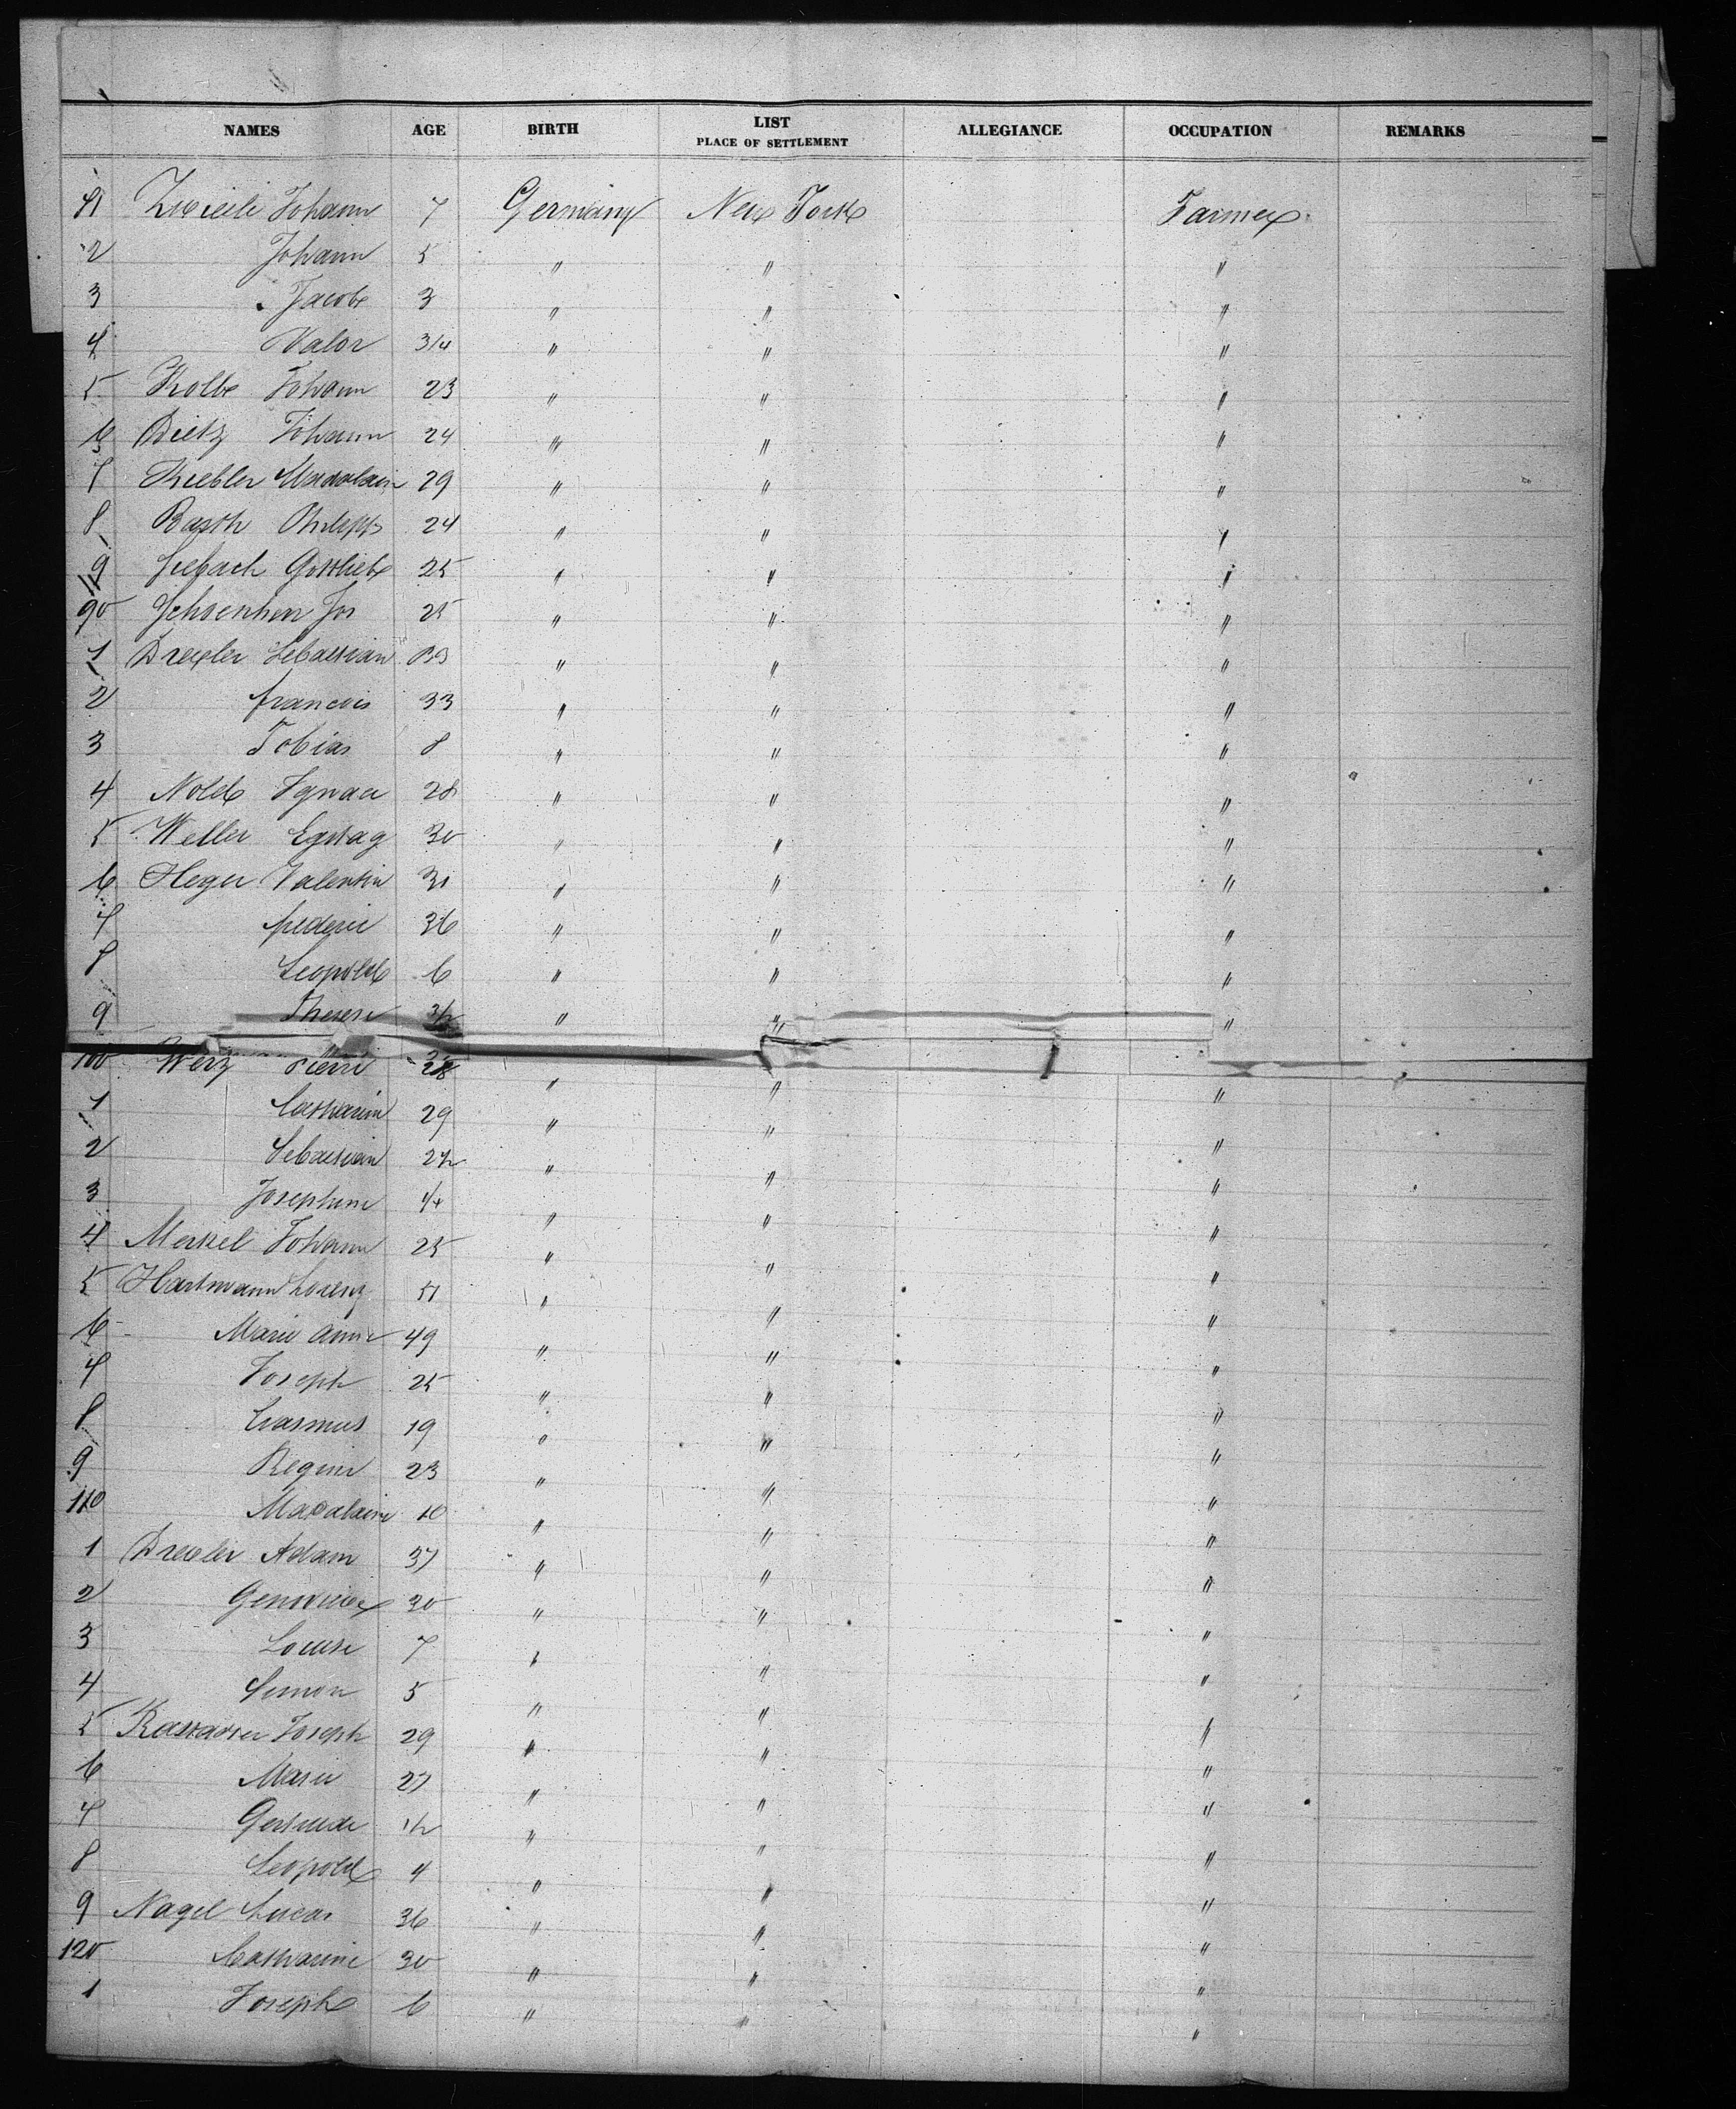 NAMES AGE BIRTH LIST PLACE OF SETTLEMENT ALLEGIANCE OCCUPATION REMARKS
Johann 7 Germany New York Farmer
2 Johann 5 " " "
3 Jacob 3 " " "
4 Valor 3/4 " " "
5 Kolb Johann 23 " " "
6 Dietz Johann 24 " " "
7 29 " " "
8 Barth Philipp 24 " " "
9 Gottlieb 25 " " "
90 Jos 25 " " "
1 Drexler Sebastian " " "
2 francois 33 " " "
3 Tobias 8 " " "
4 Nold Ignace 28 " " "
5 Weller 30 " " "
6 Heger Valentin 31 " " "
7 frederic 36 " " "
8 Leopold 6 " " "
9 Therese " " "
100 Werz Pierre 28 " " "
1 Catharin 29 " " "
2 Sebastian 2½ " " "
3 Josephine 1/4 " " "
4 Merkel Johann 25 " " "
5 Hartmann Lorenz 51 " " "
6 Marie Anne 49 " " "
7 Joseph 25 " " "
8 Erasmus 19 " " "
9 Regine 23 " " "
110 Madalaine 10 " " "
1 Drexler Adam 37 " " "
2 Genevieve 30 " " "
3 Louise 7 " " "
4 Simon 5 " " "
5 Joseph 29 " " "
6 Marie 27 " " "
7 Gertrude 1½ " " "
8 Leopold 4 " " "
9 Nagel Lucas 36 " " "
120 Catharine 30 " " "
1 Joseph 6 " " "